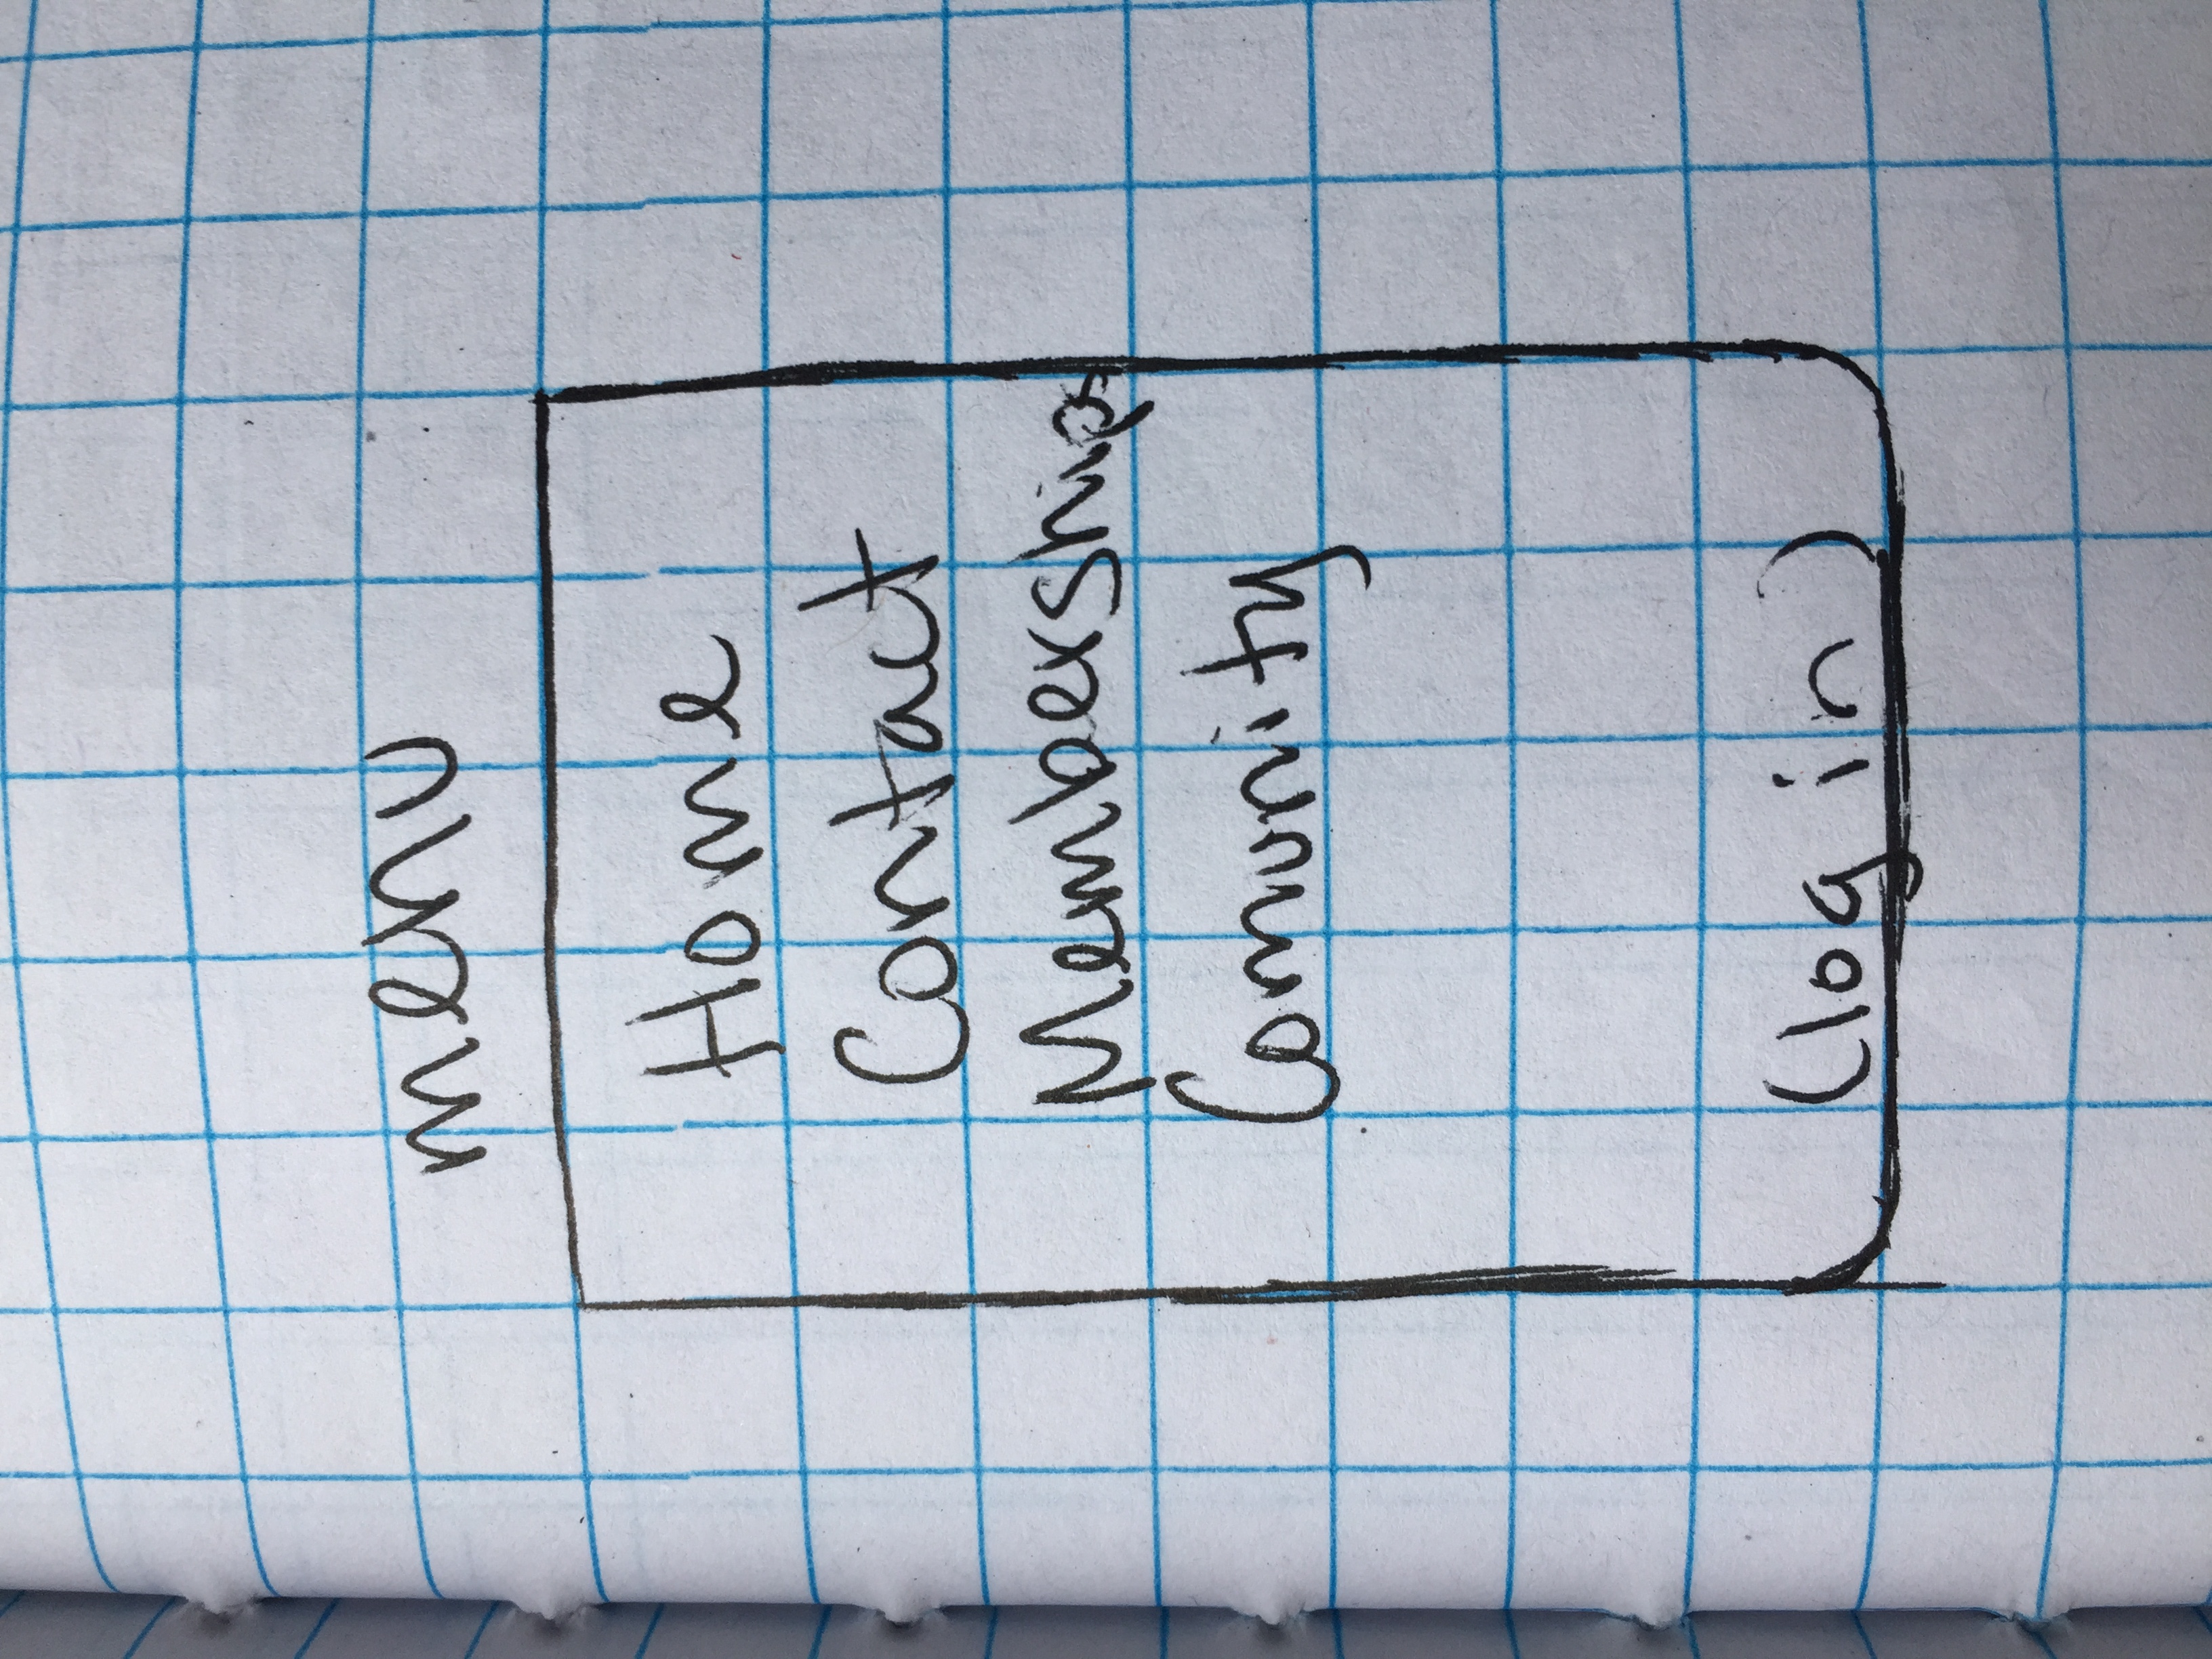 menu
Home
Contact
Memberships
Comunity
(log in)